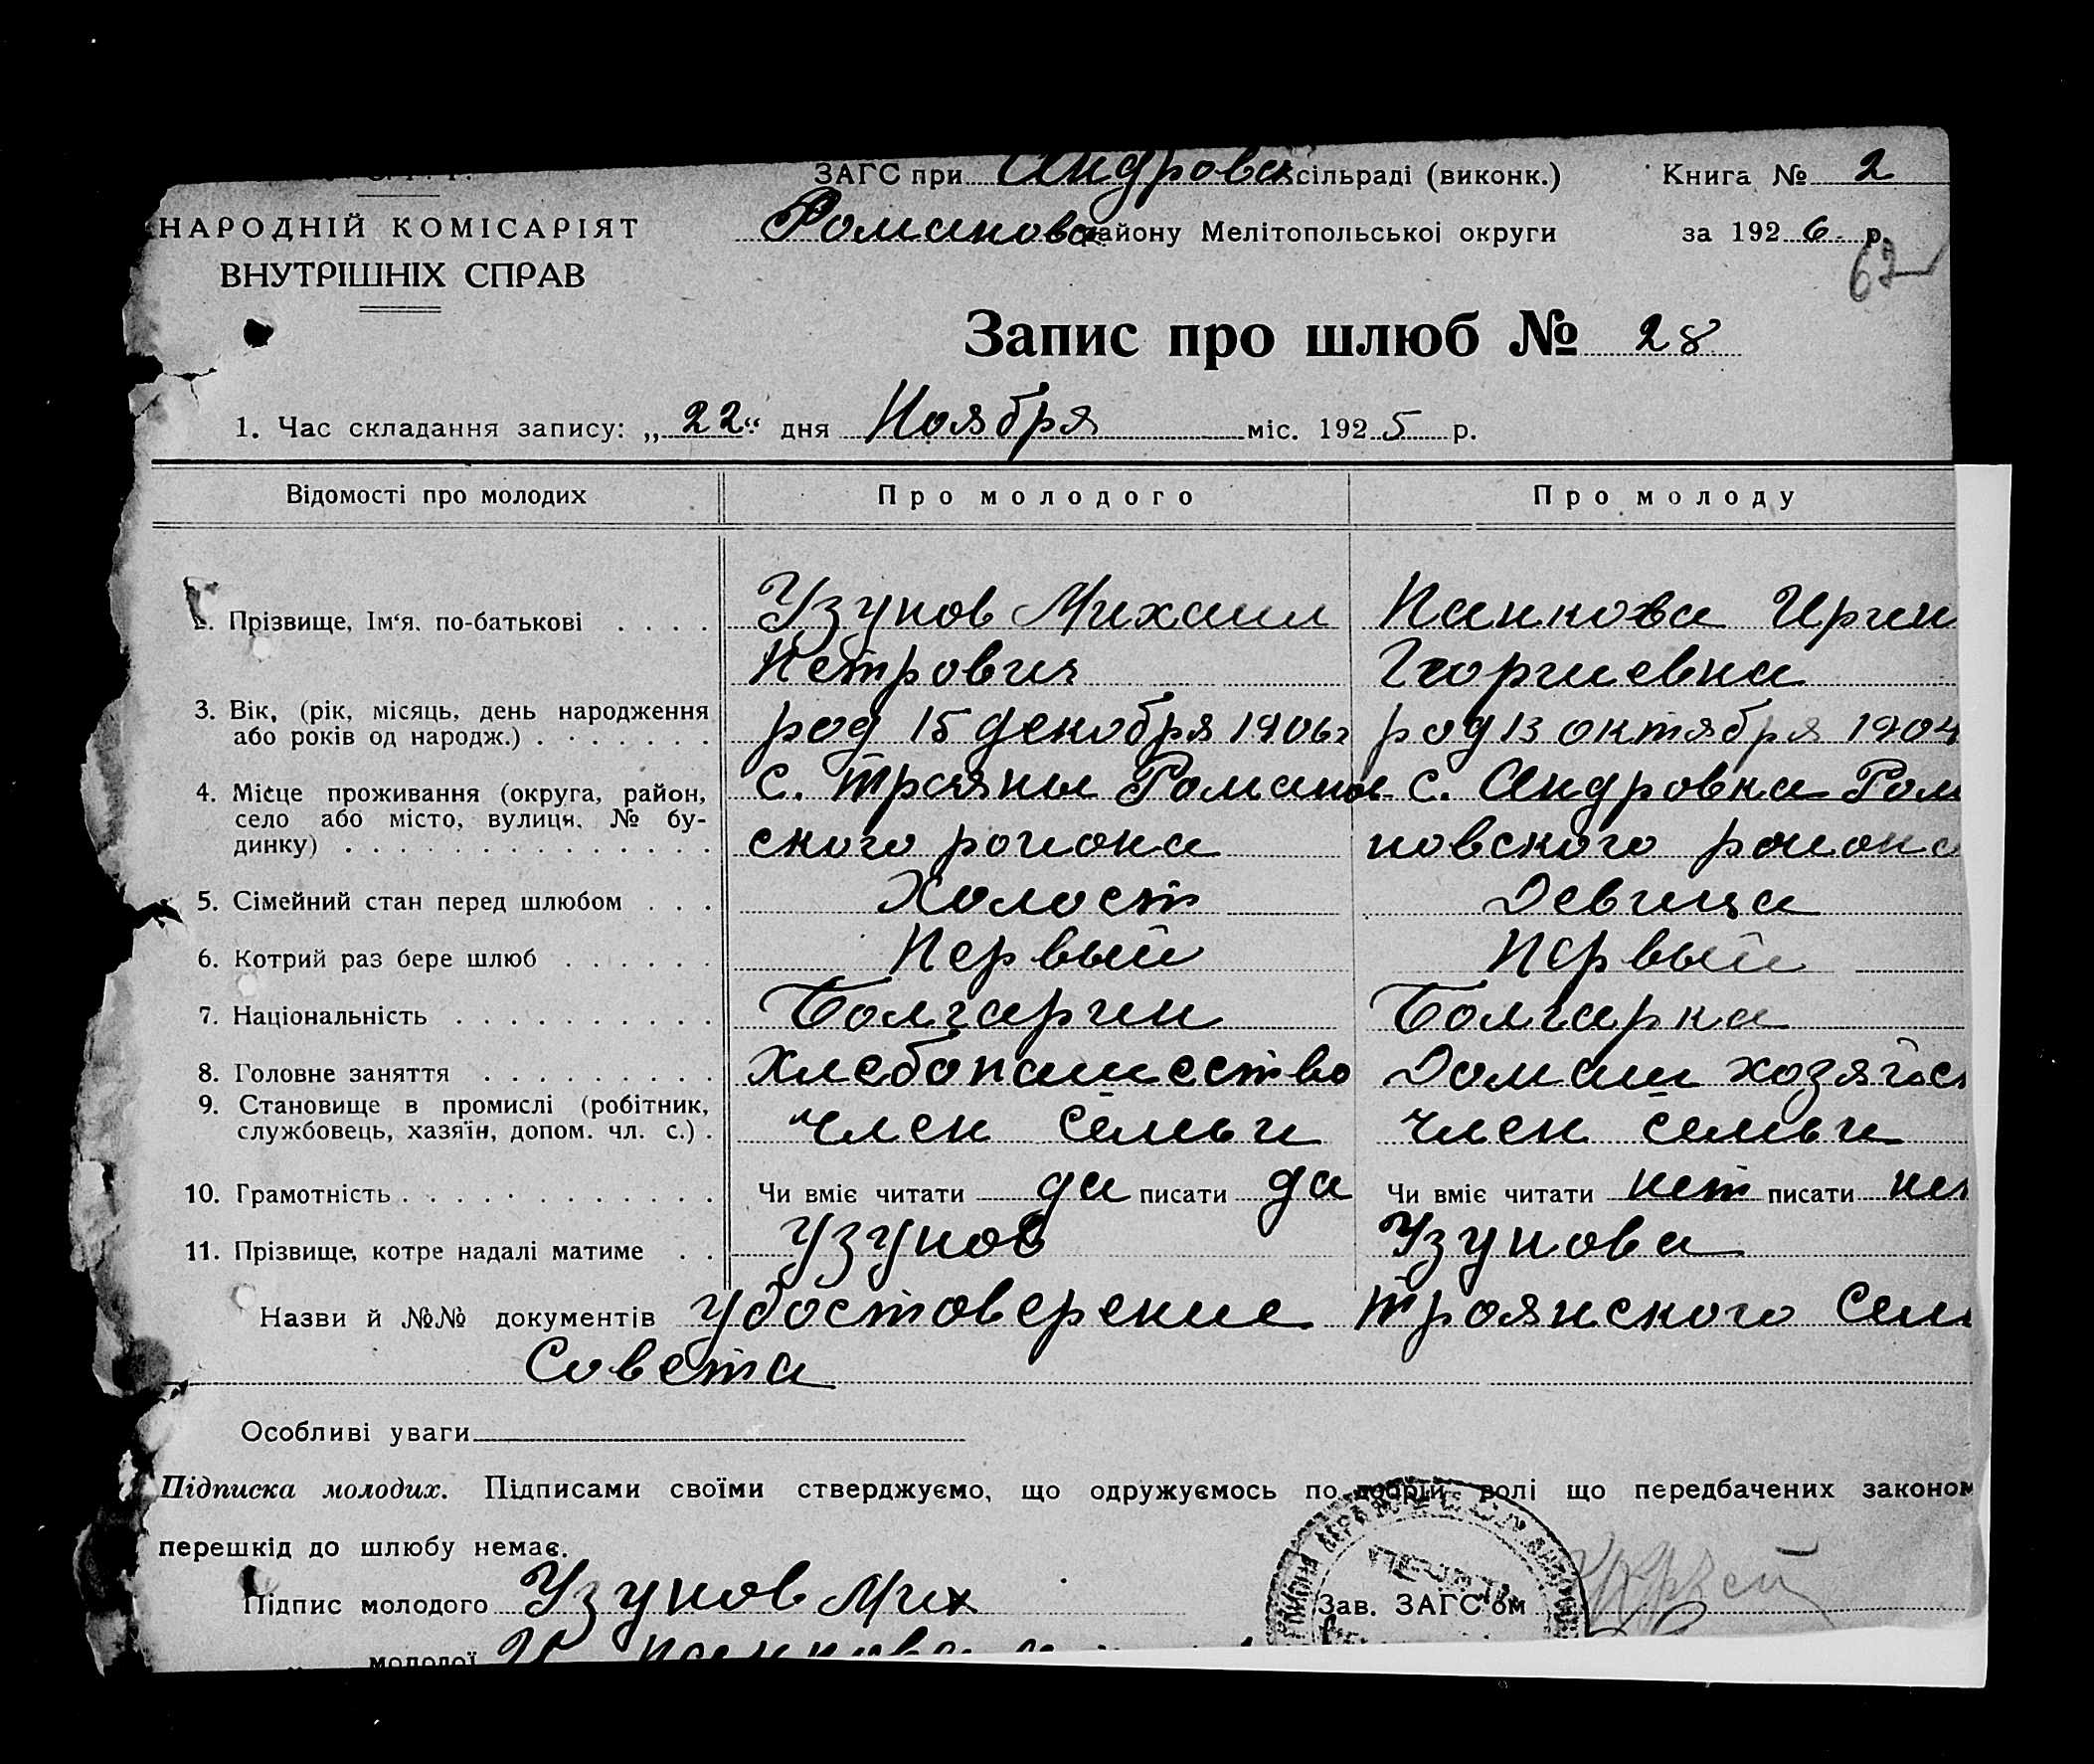 ЗАГС при Андровск сільраді (виконк.) Книга № 2
НАРОДНІЙ КОМІСАРІЯТ Романовск району Мелітопольської округи за 1926 р.
ВНУТРІШНІХ СПРАВ 62
Запис про шлюб № 28
1. Час складання запису: „22“ дня Ноября міс. 1925 р.
Відомості про молодих Про молодого Про молоду
2. Прізвище, Ім‘я, по-батькові . . . . Узунов Михаил Панкова Ирин
Петрович Георгиевна
3. Вік, (рік, місяць, день народження род 15 декабря 1906г род 13 октября 1904
або років од народж.) . . . . . . .
4. Місце проживання (округа, район, с. Трояны Романов с. Андровка Ром
село або місто, вулиця, № бу-
динку) . . . . . . . . . . . . . . ского района новского района
5. Сімейний стан перед шлюбом . . . Холост Девица
6. Котрий раз бере шлюб . . . . . . Первый Первый
7. Національність . . . . . . . . . . Болгарин Болгарка
8. Головне заняття . . . . . . . . . Хлебопашество Домаш хозяйс
9. Становище в промислі (робітник, член семьи член семьи
службовець, хазяїн, допом. чл. с.) .
10. Грамотність . . . . . . . . . . . . Чи вміє читати да писати да Чи вміє читати нет писати нет
11. Прізвище, котре надалі матиме . . Узунов Узунова
Назви й №№ документів Удостоверение Троянского Сель
Совета
Особливі уваги
Підписка молодих. Підписами своїми стверджуємо, що одружуємось по добрій волі що передбачених законом
перешкід до шлюбу немає.
Підпис молодого Узунов Мих Зав. ЗАГС‘ом
молодої